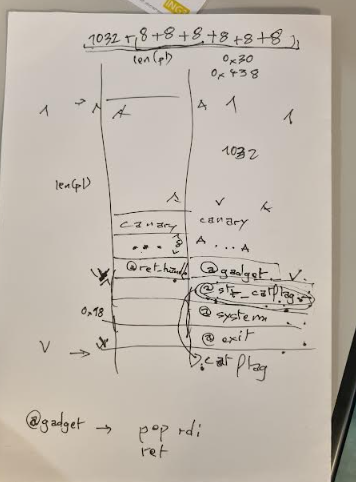 1032 + (8 + 8 + 8 + 8 + 8 + 8)
len(pl) 0x30
0x438
A A
1032
len(pl)
canary canary
... A...A
@ret_handle @gadget
@str_catflag
0x18 @system
@exit
cat flag
@gadget → pop rdi
ret